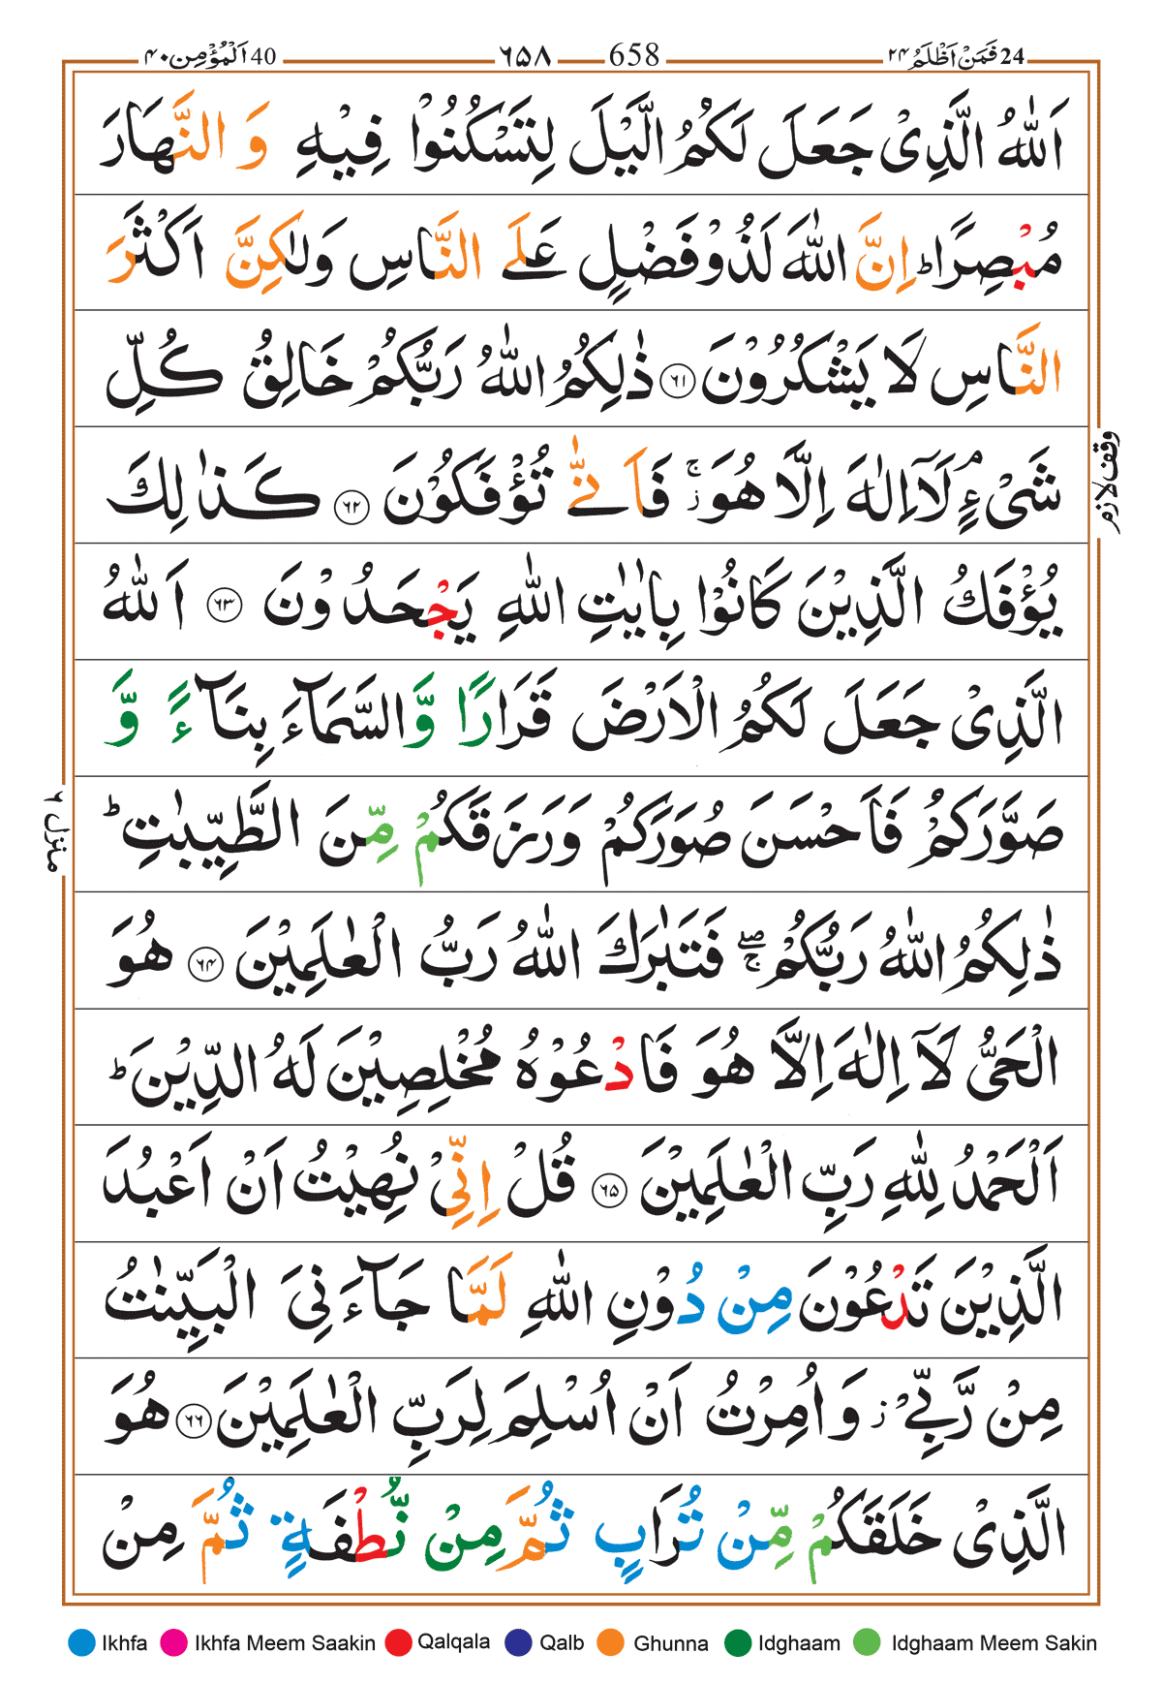 24 فَمَنْ اَظْلَمُ ٢٤ 658 ٦٥٨ 40 اَلْمُؤْمِن ٤٠
اَللّٰهُ الَّذِیْ جَعَلَ لَكُمُ الَّیْلَ لِتَسْكُنُوْا فِیْهِ وَ النَّهَارَ
مُبْصِرًاؕ اِنَّ اللّٰهَ لَذُوْ فَضْلٍ عَلَی النَّاسِ وَلٰكِنَّ اَكْثَرَ
النَّاسِ لَا یَشْكُرُوْنَ ۶۱ ذٰلِكُمُ اللّٰهُ رَبُّكُمْ خَالِقُ كُلِّ
شَیْءٍۘ لَاۤ اِلٰهَ اِلَّا هُوَ ۚز فَاَنّٰی تُؤْفَكُوْنَ ۶۲ كَذٰلِكَ
یُؤْفَكُ الَّذِیْنَ كَانُوْا بِاٰیٰتِ اللّٰهِ یَجْحَدُوْنَ ۶۳ اَللّٰهُ
الَّذِیْ جَعَلَ لَكُمُ الْاَرْضَ قَرَارًا وَّ السَّمَآءَ بِنَآءً وَّ
صَوَّرَكُمْ فَاَحْسَنَ صُوَرَكُمْ وَرَزَقَكُمْ مِّنَ الطَّیِّبٰتِؕ
ذٰلِكُمُ اللّٰهُ رَبُّكُمْ ۖۚ فَتَبٰرَكَ اللّٰهُ رَبُّ الْعٰلَمِیْنَ ۶۴ هُوَ
الْحَیُّ لَاۤ اِلٰهَ اِلَّا هُوَ فَادْعُوْهُ مُخْلِصِیْنَ لَهُ الدِّیْنَؕ
اَلْحَمْدُ لِلّٰهِ رَبِّ الْعٰلَمِیْنَ ۶۵ قُلْ اِنِّیْ نُهِیْتُ اَنْ اَعْبُدَ
الَّذِیْنَ تَدْعُوْنَ مِنْ دُوْنِ اللّٰهِ لَمَّا جَآءَنِیَ الْبَیِّنٰتُ
مِنْ رَّبِّیْ ز وَ اُمِرْتُ اَنْ اُسْلِمَ لِرَبِّ الْعٰلَمِیْنَ ۶۶ هُوَ
الَّذِیْ خَلَقَكُمْ مِّنْ تُرَابٍ ثُمَّ مِنْ نُّطْفَةٍ ثُمَّ مِنْ
وقف لازم
منزل ٦
Ikhfa Ikhfa Meem Saakin Qalqala Qalb Ghunna Idghaam Idghaam Meem Sakin